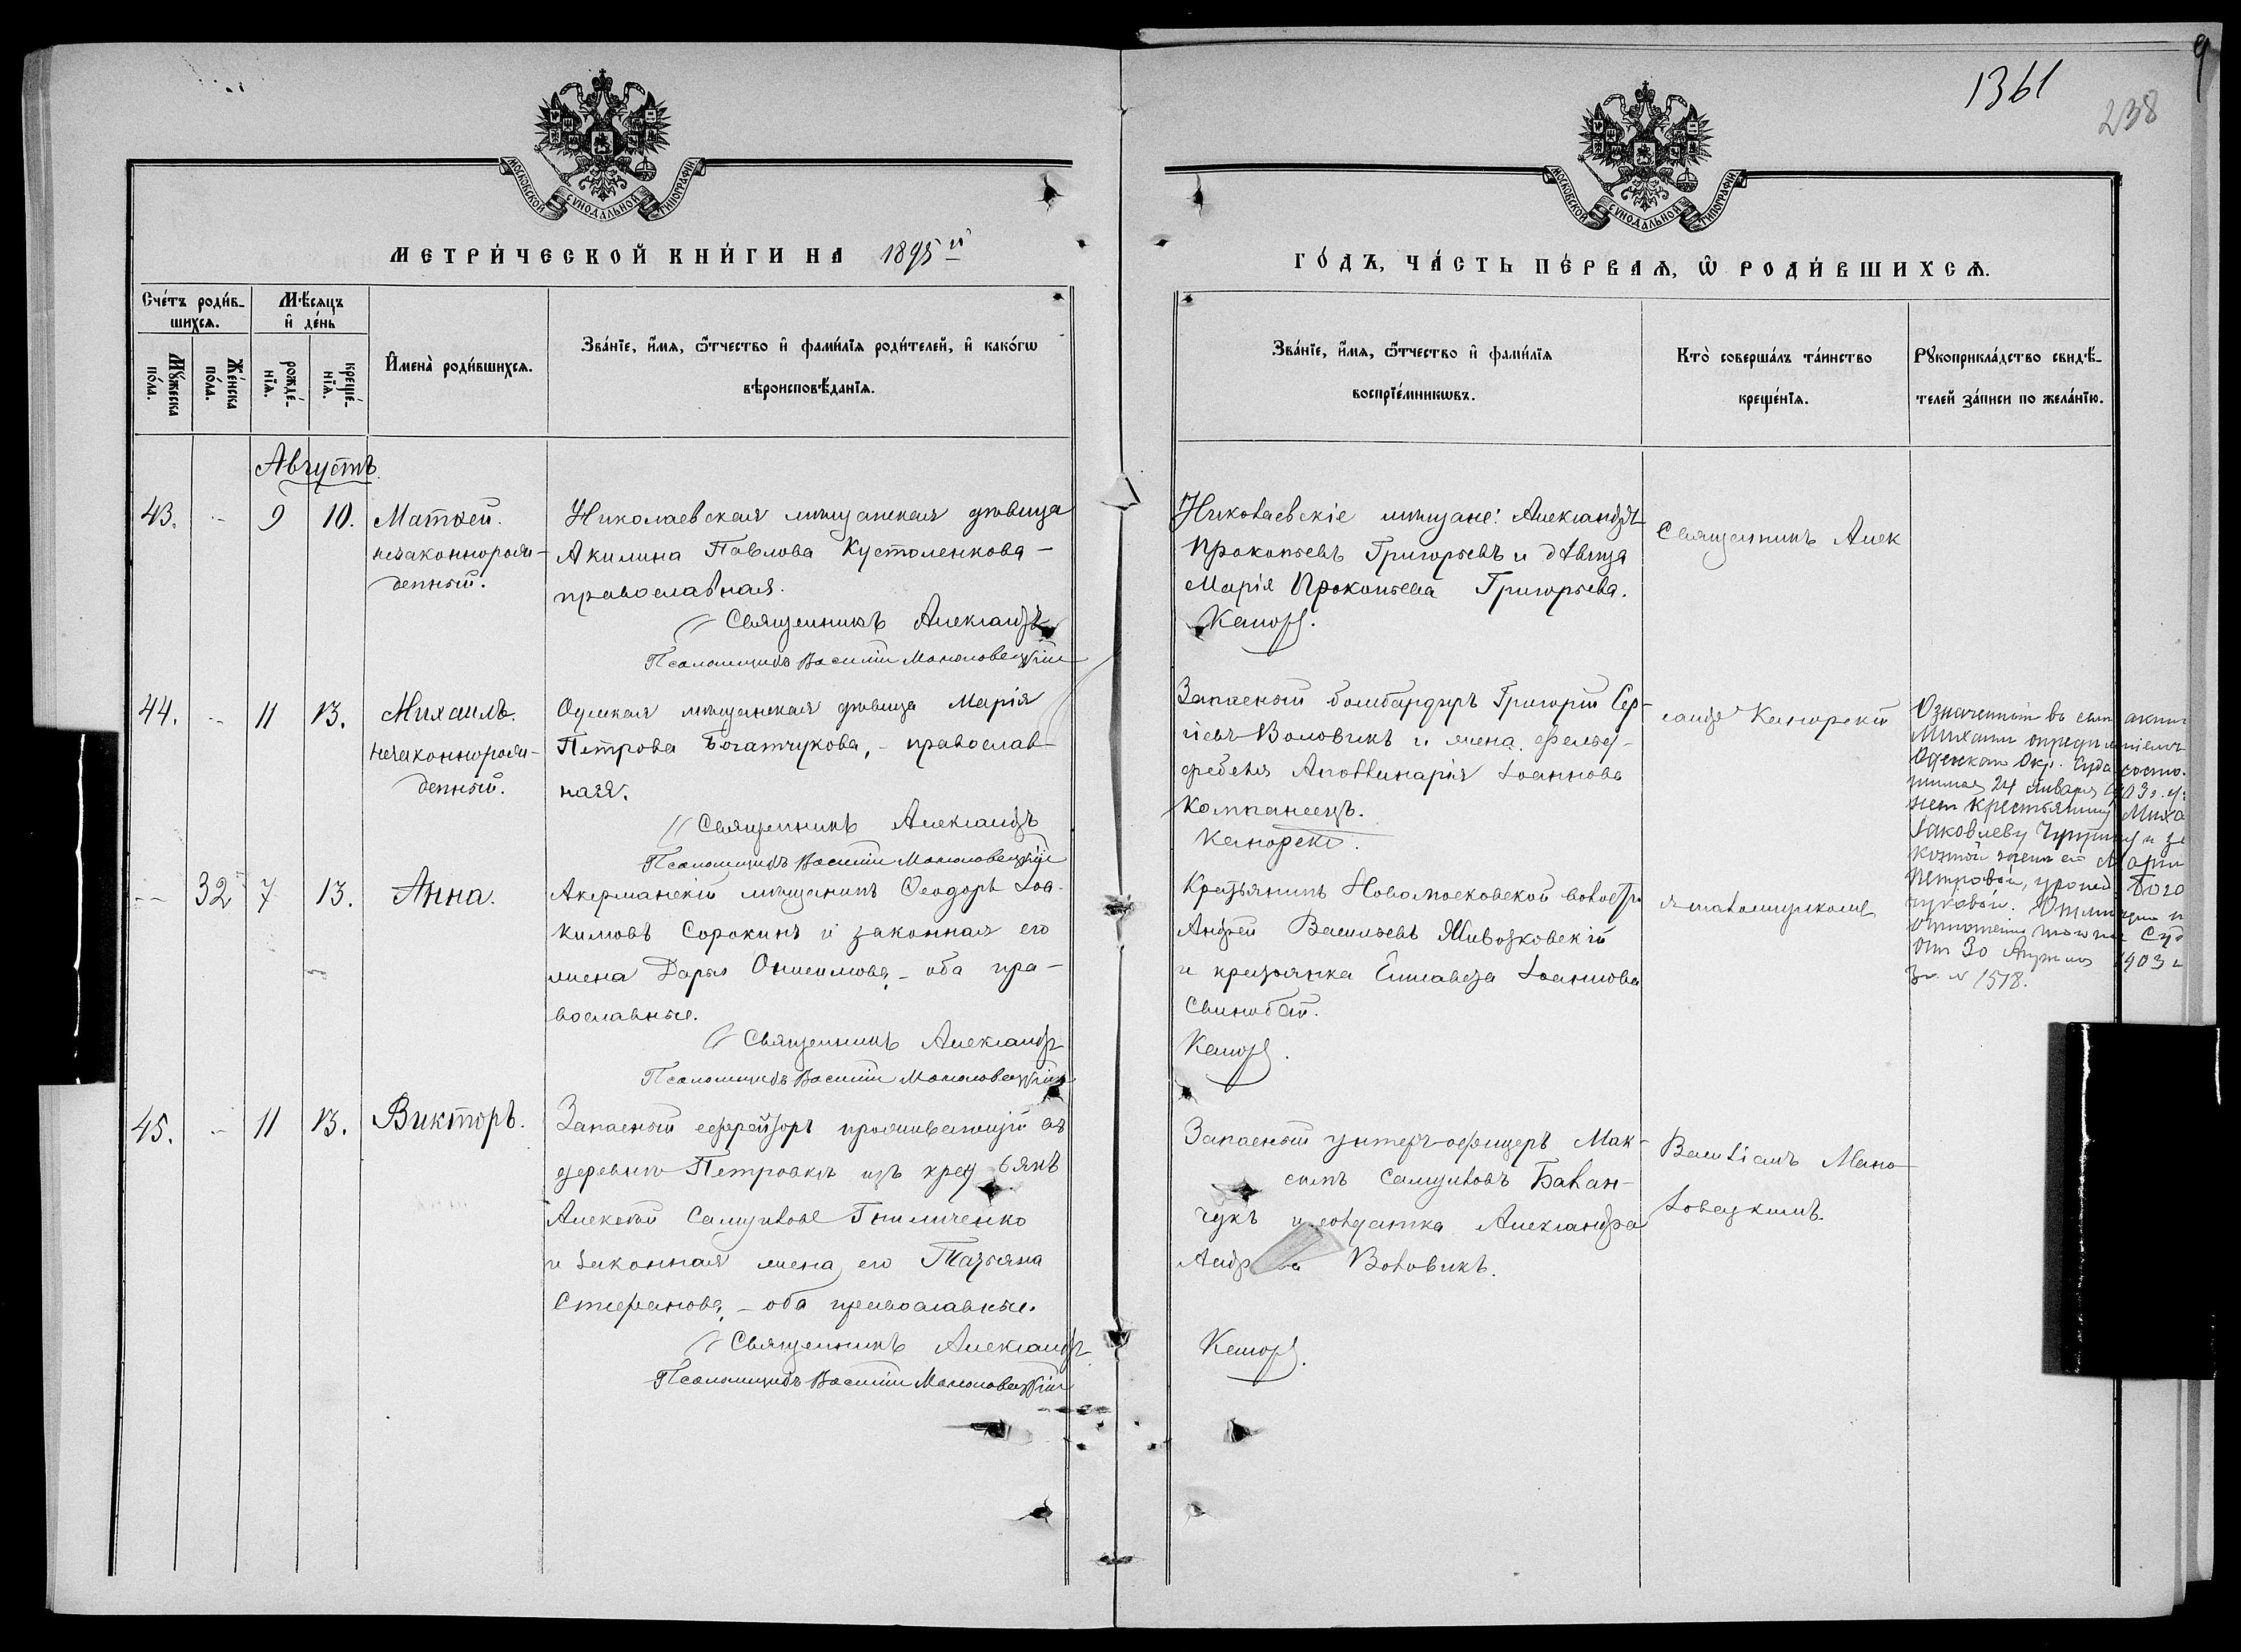 1361
238
9
МОСКОВСКОЙ СѴНОДАЛЬНОЙ ТИПОГРАФІИ
МОСКОВСКОЙ СѴНОДАЛЬНОЙ ТИПОГРАФІИ
МЕТРИ́ЧЕСКОЙ КНИ́ГИ НА 1895 й
ГО́ДЪ, ЧА́СТЬ ПЕ́РВАѦ, Ѿ РОДИ́ВШИХСѦ.
Сче́тъ роди́в-
шихсѧ.
Мѣ́сѧцъ
и҆ де́нь
Мꙋ́жеска
по́ла.
Же́нска
по́ла.
рожде́-
нїѧ.
креще́-
нїѧ.
И҆мена̀ роди́вшихсѧ.
Зва́нїе, и҆́мѧ, ѻ҆́тчество и҆ фами́лїѧ роди́телей, и҆ како́гѡ
вѣроисповѣ́данїѧ.
Зва́нїе, и҆́мѧ, ѻ҆́тчество и҆ фами́лїѧ
воспрїе́мникѡвъ.
Кто̀ соверша́лъ та́инство
креще́нїѧ.
Рꙋкоприкла́дство свидѣ́-
телей за́писи по жела́нїю.
Августъ.
43. -- 9 10. Матѳей.
незаконнорож-
денный.
Николаевская мѣщанская дѣвица
Акилина Павлова Кустоленкова -
православная.
Священникъ Александръ
Псаломщикъ Василій Маноловецкій
Николаевскіе мѣщане: Александръ
Прокопьевъ Григорьевъ и дѣвица
Марія Прокопьева Григорьева.
Священникъ Алек
44. -- 11 13. Михаилъ.
незаконнорож-
денный.
Одесская мѣщанская дѣвица Марія
Петрова Богатчукова, - православ-
ная.
Священникъ Александръ
Псаломщикъ Василій Маноловецкій
Запасный бомбардиръ Григорій Сер-
гіевъ Воловикъ и жена фельд-
фебеля Аполлинарія Іоаннова
Компанеецъ.
сандръ
Означенный въ семъ актѣ
Михаилъ опредѣленіемъ
Одесскаго Окр. Суда состо-
24 января 1903 г.
крестьянину Миха
Яковлеву и за
женѣ его Маріи
Петровой, урожд. Бога
чуковой.
отношеніе Суд
отъ 30 Апрѣля 1903 г
за № 1578.
-- 32 7 13. Анна.
Акерманскій мѣщанинъ Ѳеодоръ Іоа-
кимовъ Сорокинъ и законная его
жена Дарья Онисимова, - оба пра-
вославные.
Священникъ Александръ
Псаломщикъ Василій Маноловецкій
Крестьянинъ Новомосковской волости
Андрей Васильевъ Живозковскій
и крестьянка Елисавета Іоаннова
Свинобой.
псаломщикомъ
45. -- 11 13. Викторъ.
Запасный ефрейторъ проживающій въ
деревнѣ Петровкѣ изъ крестьянъ
Алексѣй Самуиловъ Гниличенко
и законная жена его Татьяна
Стефанова, - оба православные.
Священникъ Александръ
Псаломщикъ Василій Маноловецкій
Запасный унтеръ-офицеръ Мак-
симъ Самуиловъ Бакан-
чукъ и солдатка Александра
Воловикъ.
Василіемъ Мано
ловецкимъ.